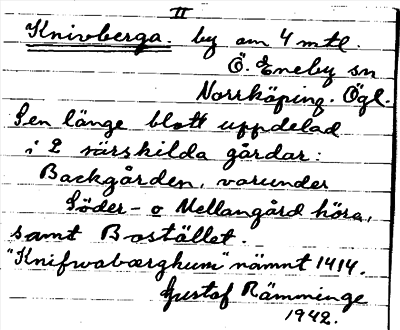 II
Knivberga. by om 4 mtl.
Ö. Eneby sn
Norrköping. Ögl.
Sen länge blott uppdelad
i 2 särskilda gårdar:
Backgården, varunder
Söder- o Mellangård höra,
samt Bostället.
"Knifwabærghum" nämnt 1414.
Gustaf Rämminge
1942.